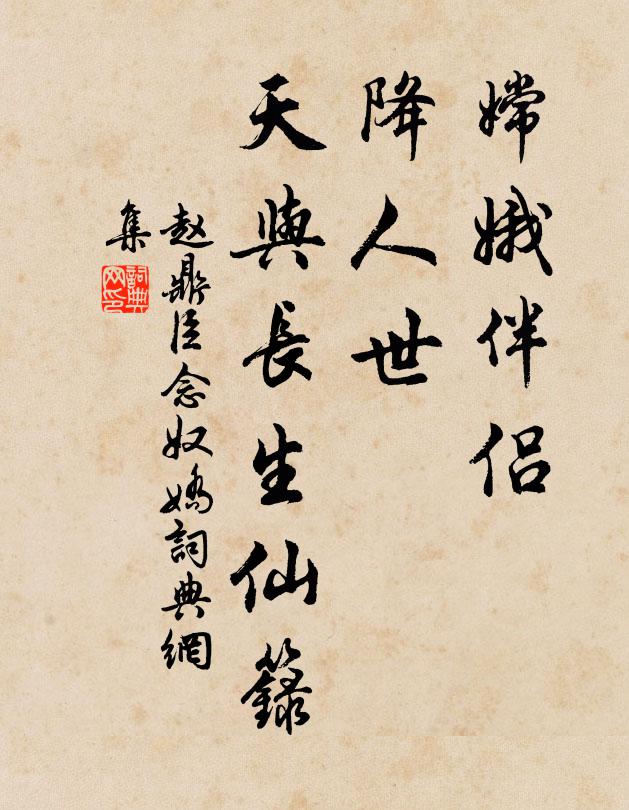 嫦娥伴侣
降人世
天與長生仙籙
赵鼎臣念奴嬌詞典網
集
詞典网印